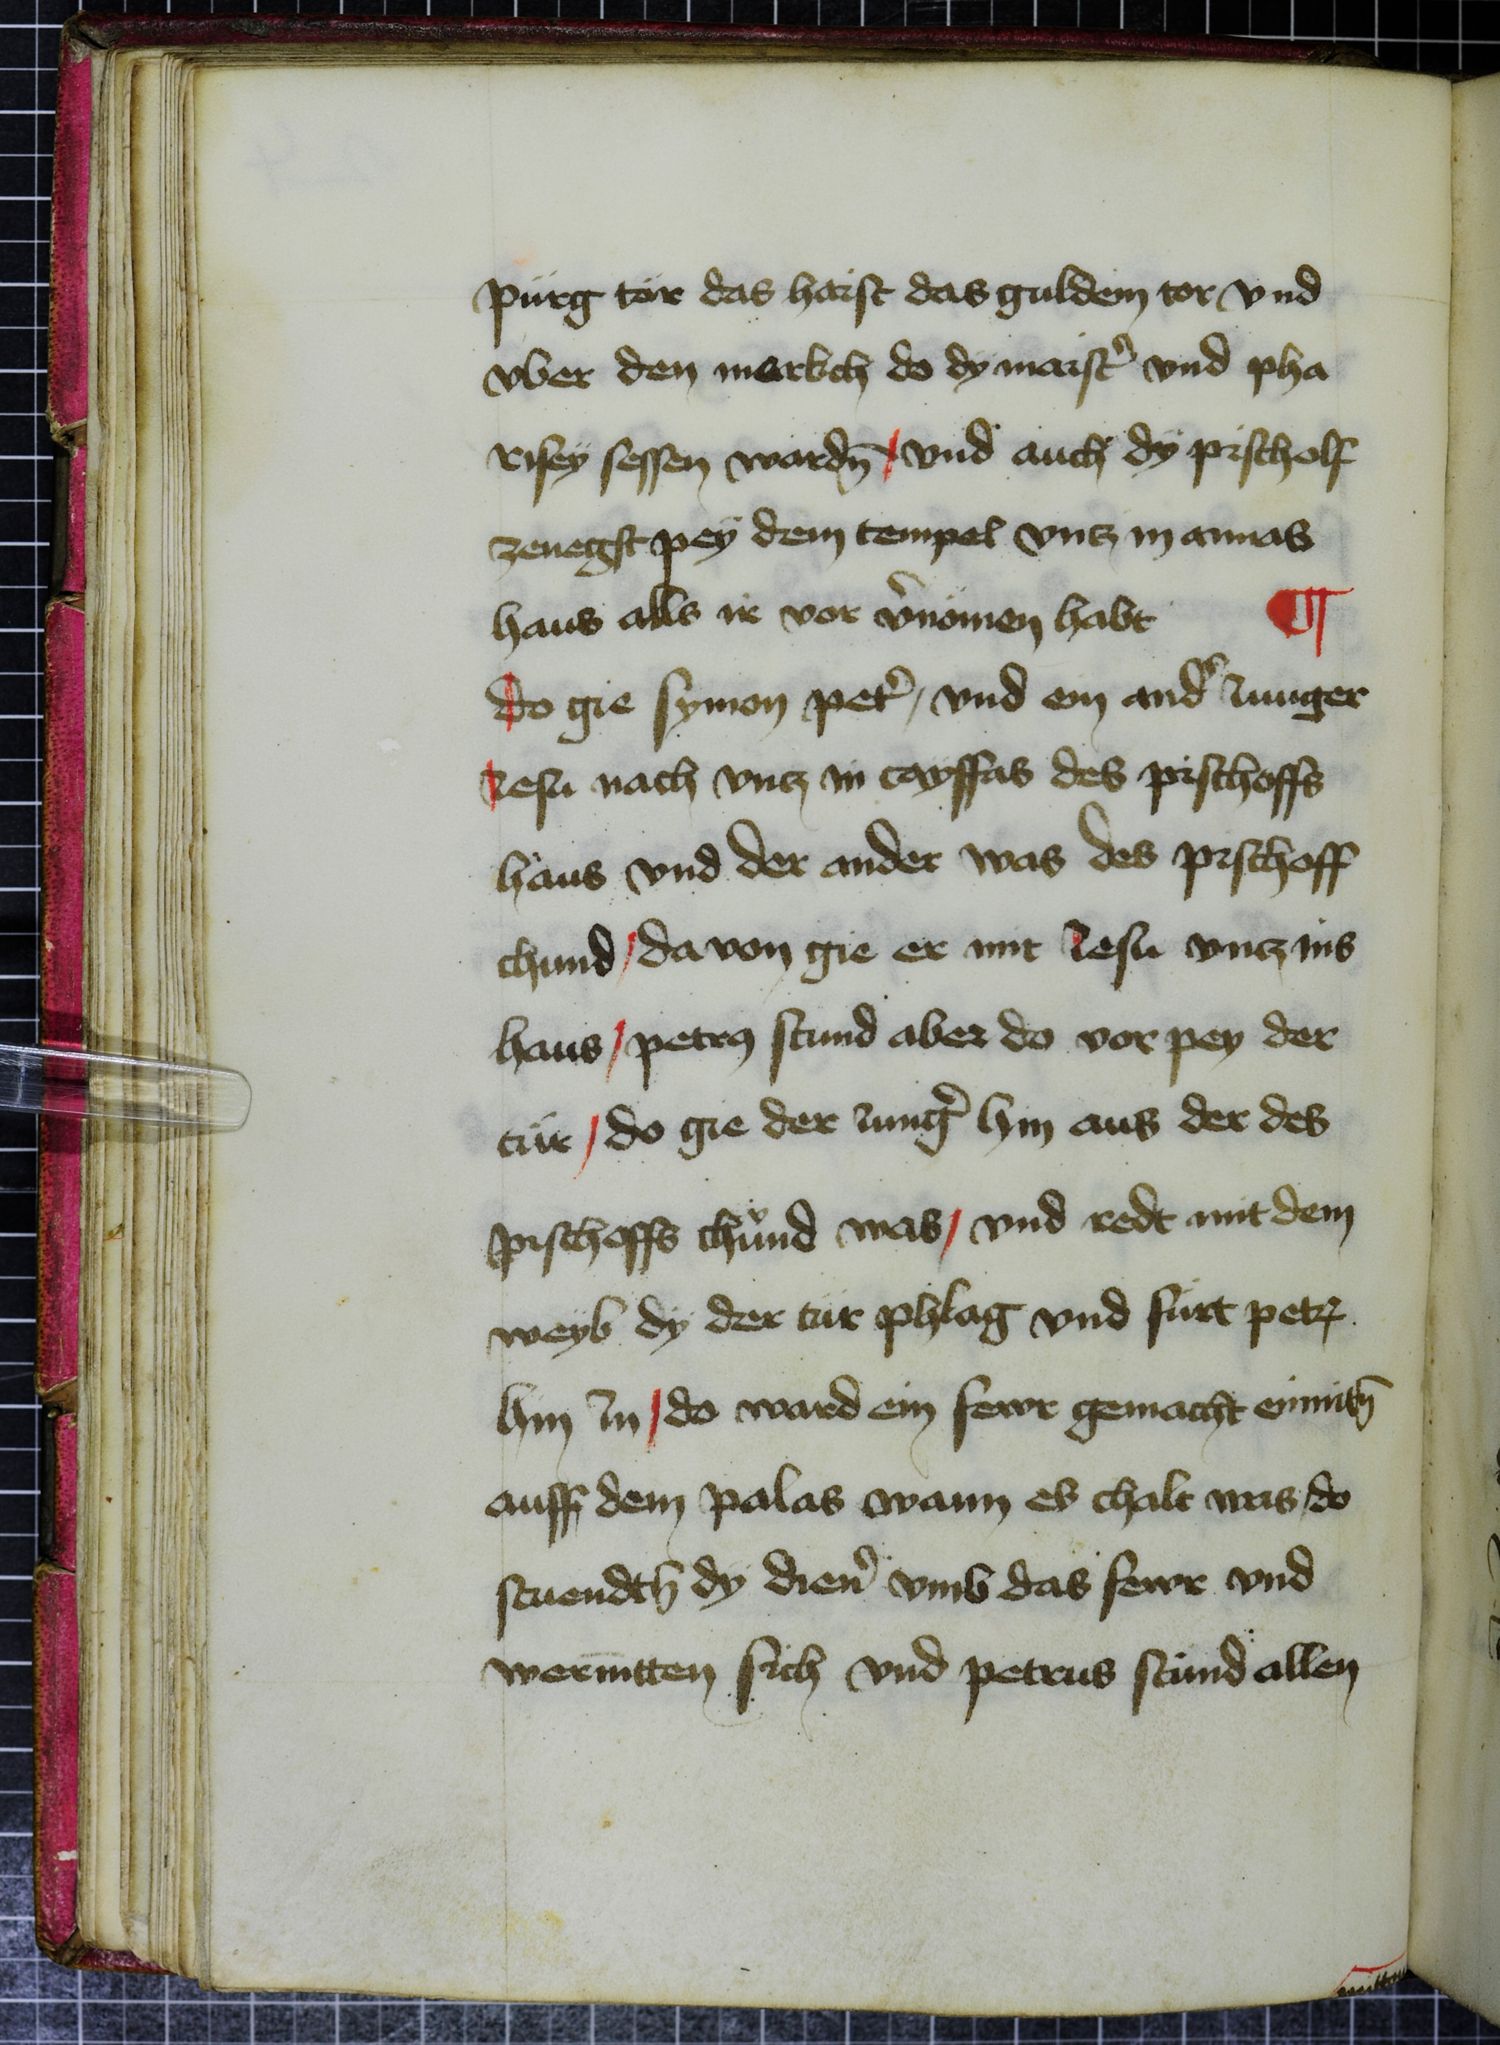 pürg tör das haist das guldein tor vnd
vber den markch do dy maist᷑ vnd pha
risey sessen wardn̄ / vnd auch dÿ pischolf
zenegst peÿ dem tempel vntz in annas
haus alls ir vor v᷑nomen habt ¶
do gie symon pet᷑ / vnd ein and᷑ Junger
Jesu nach vntz in cayffas des pischoffs
haus vnd der ander was des pischoff
chund / da von gie er mit Jesu vntz ins
haus / petrꝯ stund aber do vor pey der
tür / do gie der Jung᷑ hin aus der des
pischoffs chuͦnd was / vnd redt mit dem
weyb dy der tür phlag vnd fürt petrꝭ
hin Jn / do ward ein fewr gemacht einmitn̄
auff dem palas wann es chalt was / do
stuendtn̄ dy dien᷑ vmb das fewr vnd
wermitten sich vnd petrus stund allen
mitten